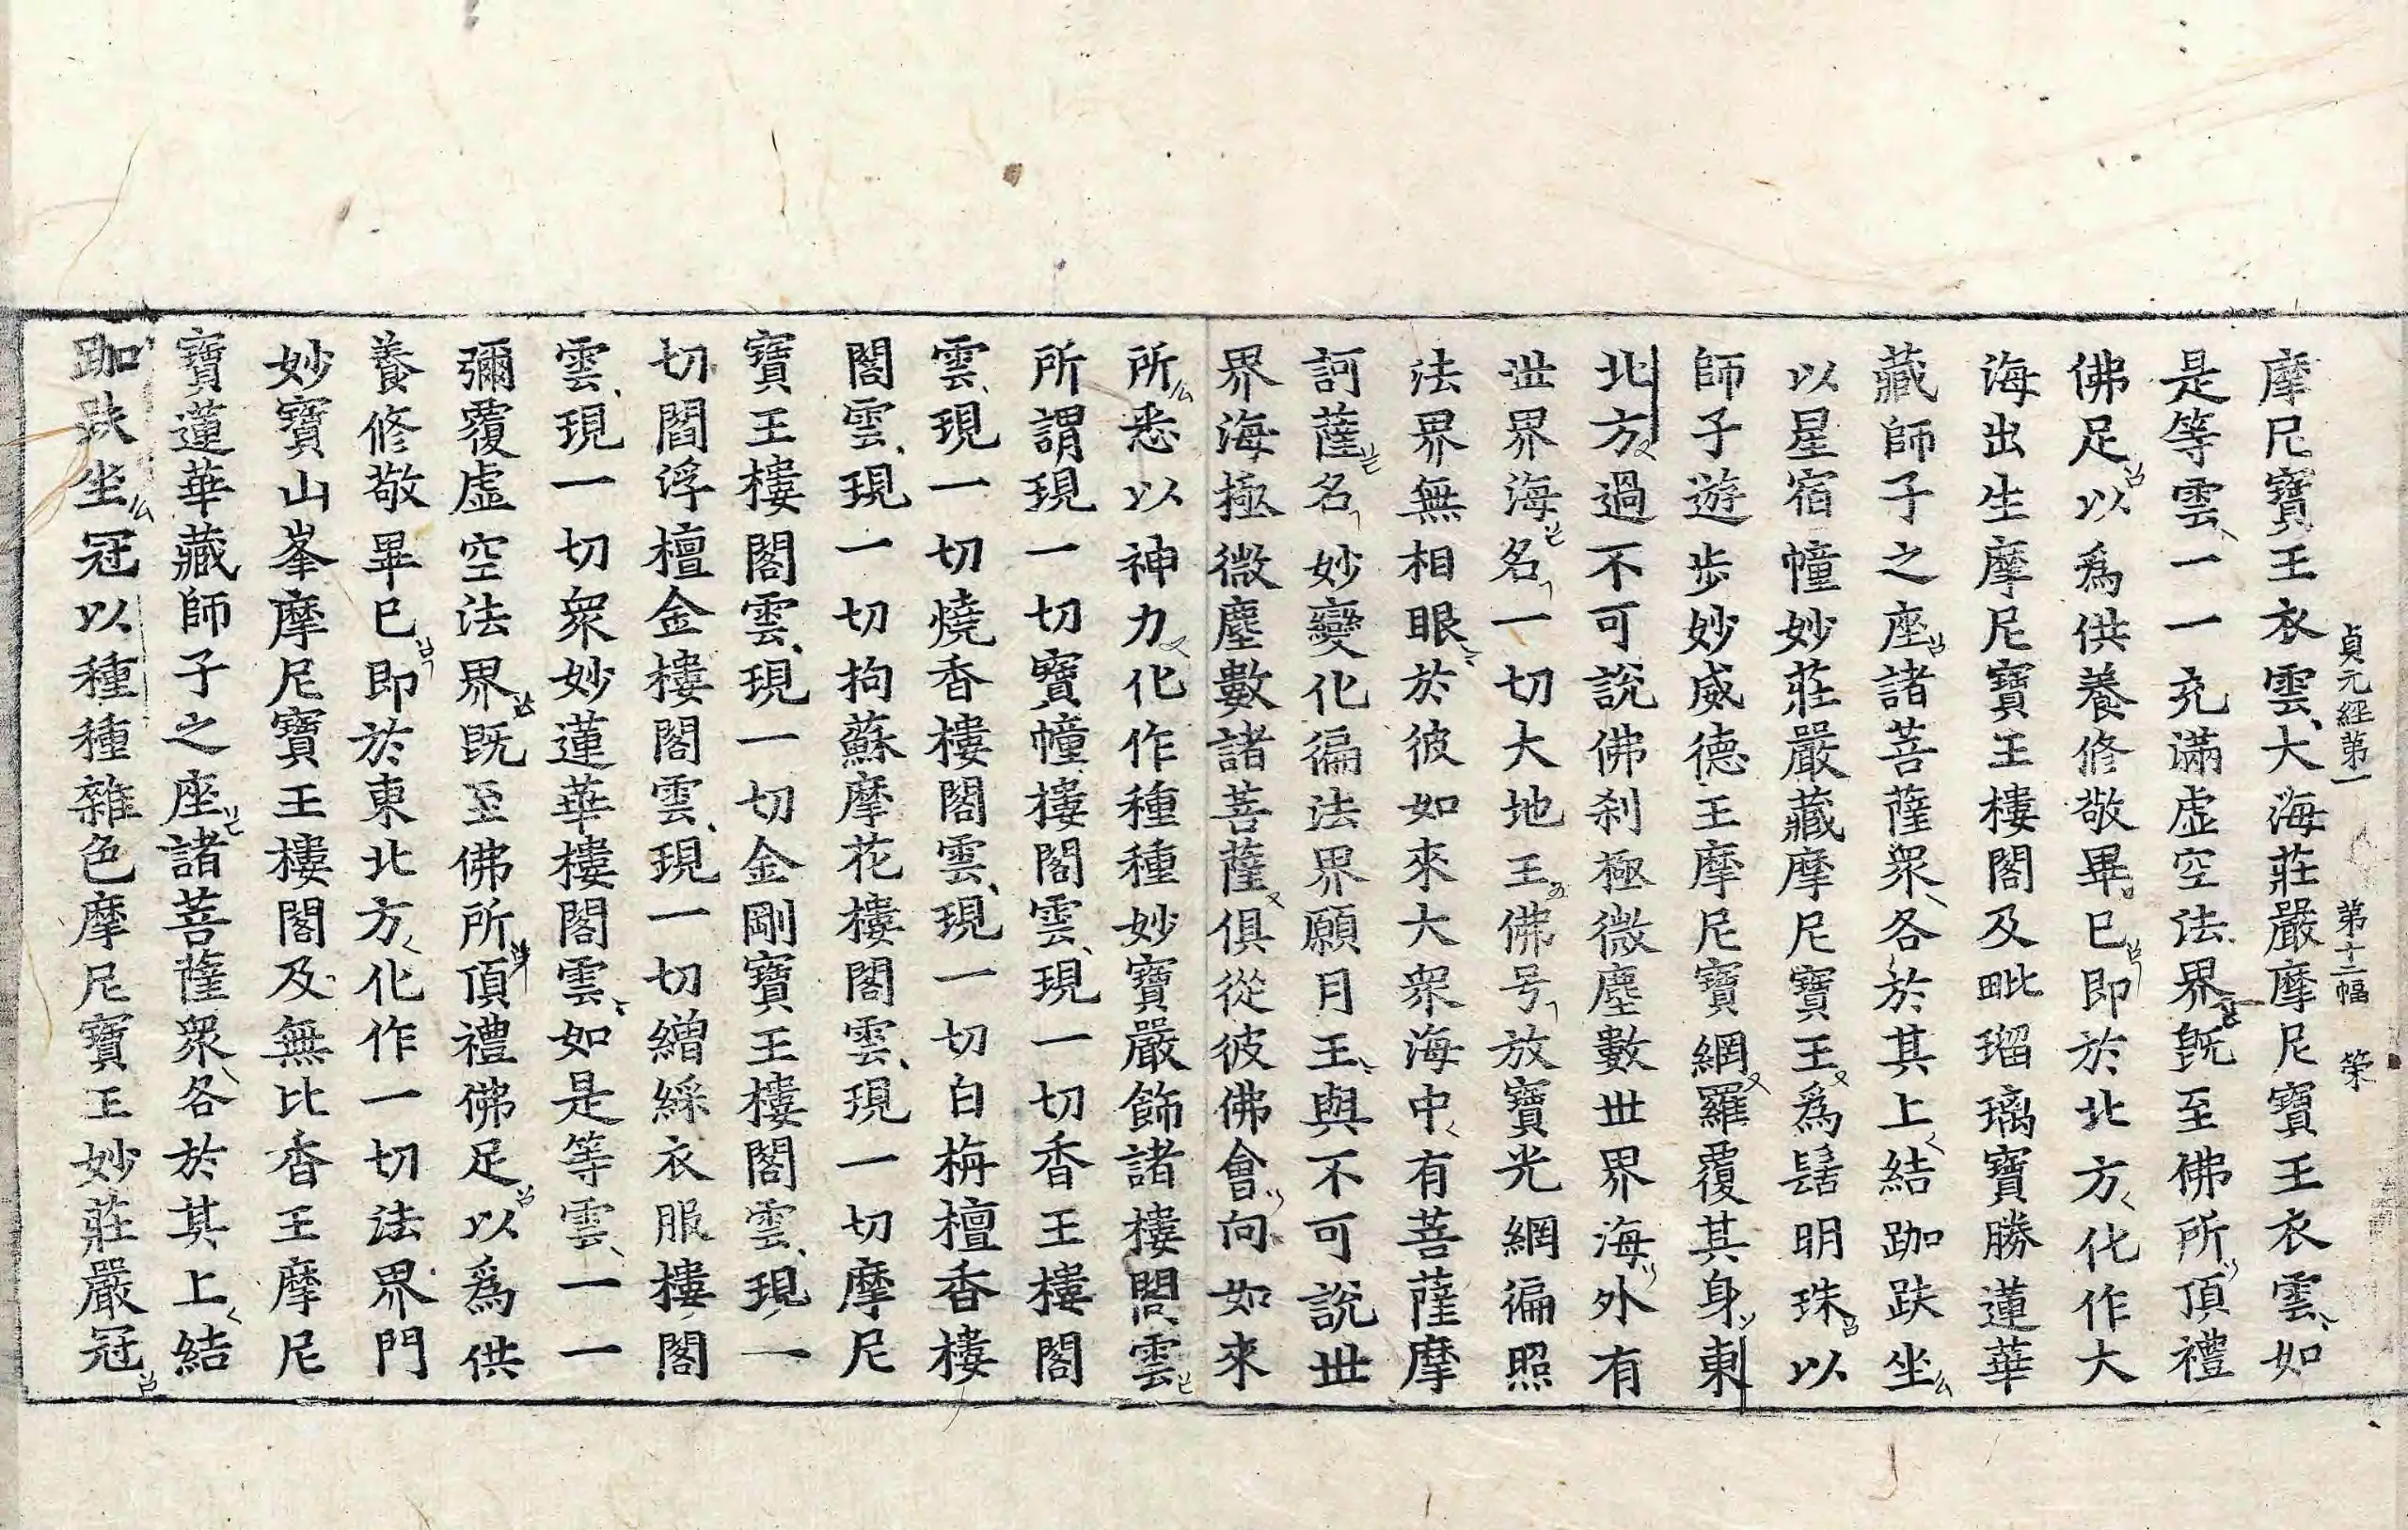 貞元經第一 第十二幅 荣
摩尼寶王衣雲大海莊嚴摩尼寶王衣雲如
是等雲一一充滿虛空法界既至佛所頂禮
佛足以爲供養修敬畢已即於北方化作大
海出生摩尼寶王樓閣及毗瑠璃寶勝蓮華
藏師子之座諸菩薩衆各於其上結跏趺坐
以星宿幢妙莊嚴藏摩尼寶王爲髻明珠以
師子遊步妙威德王摩尼寶網羅覆其身東
北方過不可說佛刹極微塵數世界海外有
世界海名一切大地王佛号放寶光網徧照
法界無相眼於彼如來大衆海中有菩薩摩
訶薩名妙變化徧法界願月王與不可說世
界海極微塵數諸菩薩俱從彼佛會向如來
所悉以神力化作種種妙寶嚴飾諸樓閣雲
所謂現一切寶幢樓閣雲現一切香王樓閣
雲現一切燒香樓閣雲現一切白栴檀香樓
閣雲現一切拘蘇摩花樓閣雲現一切摩尼
寶王樓閣雲現一切金剛寶王樓閣雲現一
切閻浮檀金樓閣雲現一切繒綵衣服樓閣
雲現一切衆妙蓮華樓閣雲如是等雲一一
彌覆虛空法界既至佛所頂禮佛足以爲供
養修敬畢已即於東北方化作一切法界門
妙寶山峯摩尼寶王樓閣及無比香王摩尼
寶蓮華藏師子之座諸菩薩衆各於其上結
跏趺坐冠以種種雜色摩尼寶王妙莊嚴冠